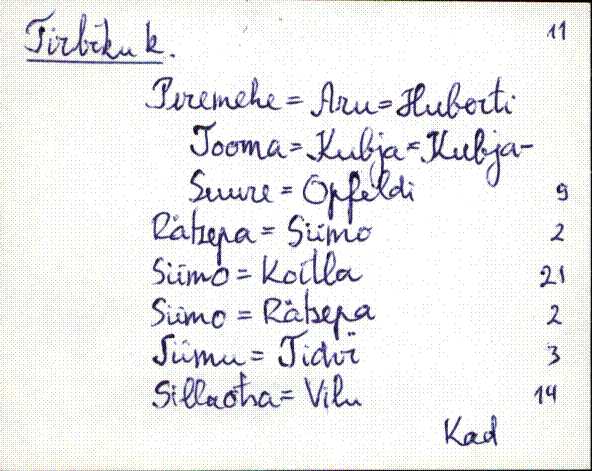 Tirbiku k. 11
Peremehe = Aru = Huberti
Tooma = Kubja = Kubja-
Suure = Opfeldi 9
Rätsepa = Siimo 2
Siimo = Koitla 21
Siimo = Rätsepa 2
Siimu = Tidvi 3
Sillaotsa = Vilu 14
Kad